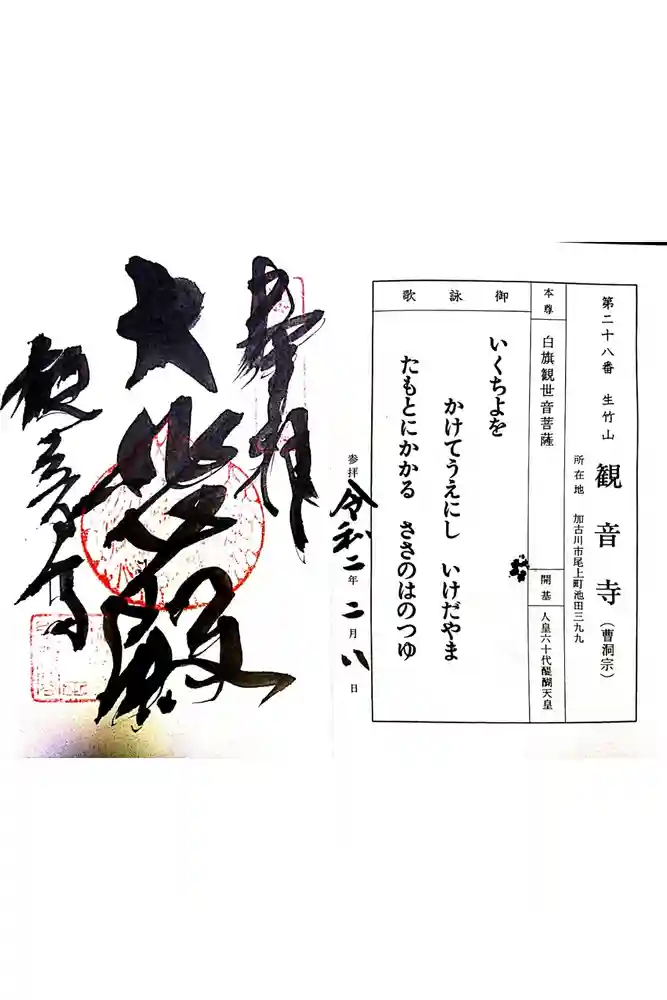 第二十八番 生竹山 観音寺（曹洞宗）
所在地 加古川市尾上町池田三九九
本尊 白旗観世音菩薩
開基 人皇六十代醍醐天皇
御詠歌
いくちよを
かけてうえにし いけだやま
たもとにかかる ささのはのつゆ
参拝 令和二年二月八日
奉拝
大悲殿
観音寺